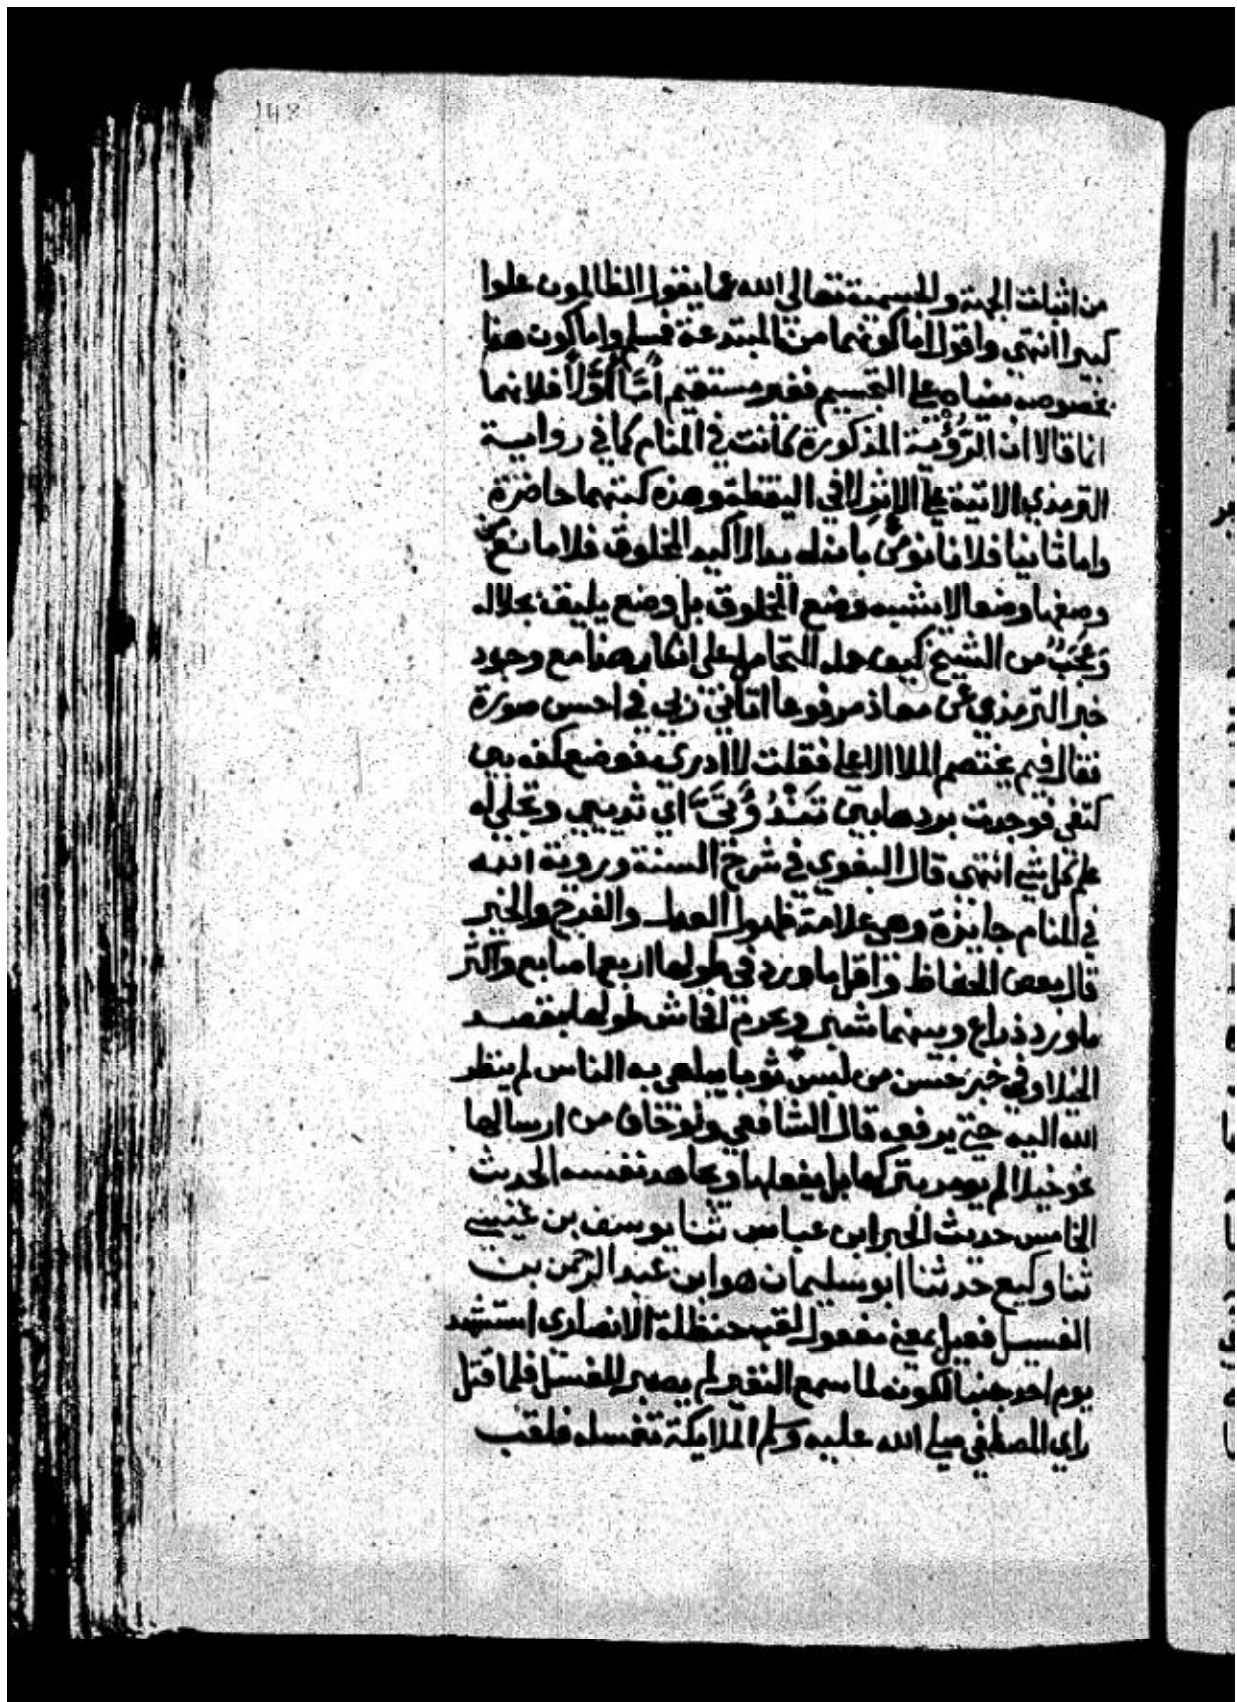 148
من اثبات الجهة والجسمية تعالى الله عما يقول الظالمون علوا
كبيرا انتهى واقول اما كونهما من المبتدعة فمسلم واما كون هذا
بخصوصه بنياه على التجسيم فغير مستقيم اما اولا فلانهما
انما قالا ان الرؤية المذكورة كانت في المنام كما في رواية
الترمذي الاتية على الاثر لا في اليقظة وهذه كتبهما حاضرة
واما ثانيا فلانا نؤمن بان له يدا لا كيد المخلوق فلا مانع من
وضعها وضعا لا يشبه وضع المخلوق بل وضع يليق بجلاله
وعجب من الشيخ كيف حمله التحامل على انكار هذا مع وجود
خبر الترمذي عن معاذ مرفوعا اتاني ربي في احسن صورة
فقال فيم يختصم الملا الاعلى فقلت لا ادري فوضع كفه بين
كتفي فوجدت بردها بين ثندوتي اي ثديي وتجلى له
علم كل شي انتهى قال البغوي في شرح السنة وروية الله
في المنام جايزة وهي علامة ظهور العدل والفرج والخير
قال بعض الحفاظ واقل ما ورد في طولها اربع اصابع واكثر
ما ورد ذراع وبينهما شبر ويحرم افحاش طولها بقصد
الخيلا وفي خبر حسن من لبس ثوبا يباهي به الناس لم ينظر
الله اليه حتى يرفعه قال الشافعي ولو خاف من ارسالها
نحو خيلا لم يومر بتركها بل يفعلها ويجاهد نفسه الحديث
الخامس حديث الحبر ابن عباس ثنا يوسف بن عيسى
ثنا وكيع حدثنا ابو سليمان هو ابن عبد الرحمن بن
الغسيل فعيل بمعنى مفعول لقب حنظلة الانصاري استشهد
يوم احد جنبا لكونه لما سمع النفير لم يصبر للغسل فلما قتل
راي المصطفى صلى الله عليه وسلم الملايكة تغسله فلقب